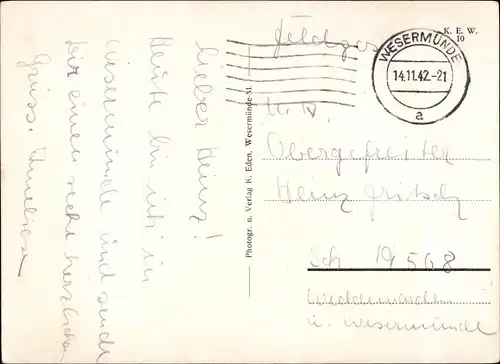 Lieber Heinz!
Heute bin ich in
Wesermünde und sende
Dir einen recht herzlichen
Gruss.
Photogr. u. Verlag K. Eden, Wesermünde-M.
K. E. W.
10
WESERMÜNDE
14.11.42.-21
a
Feldpost
Obergefreiter
Heinz Fritsch
Sch 19568
u. Wesermünde